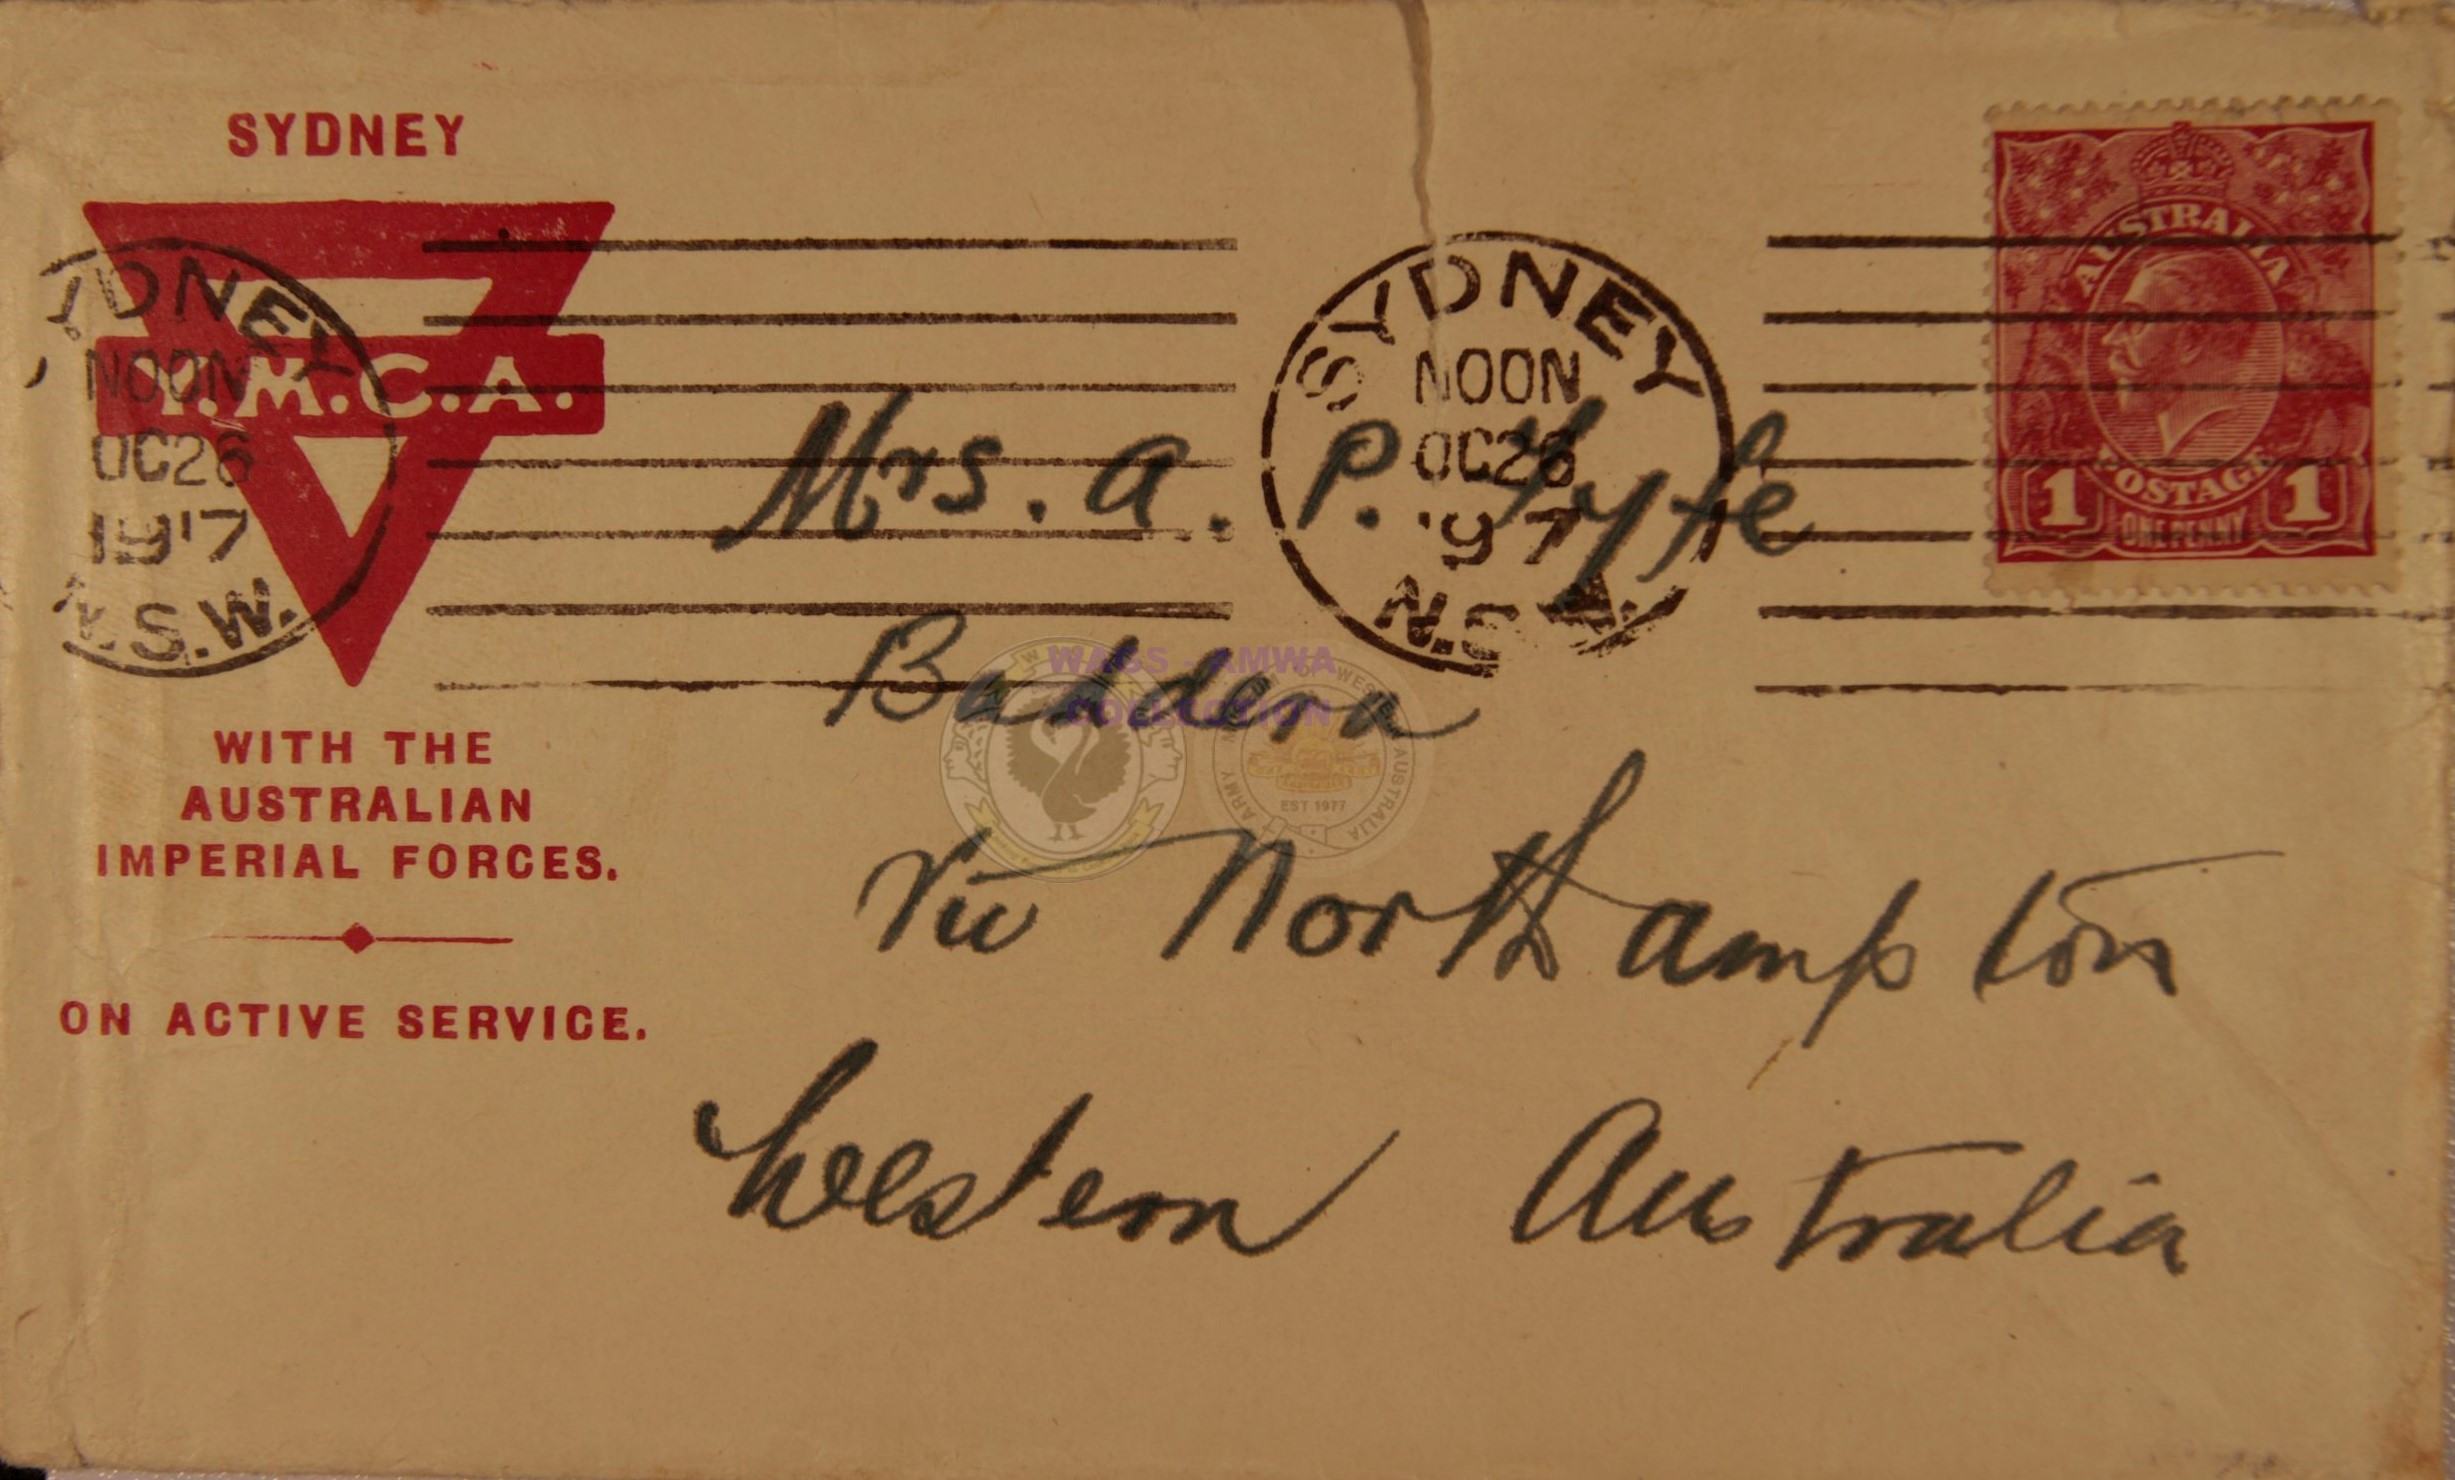 SYDNEY
Y.M.C.A.
WITH THE
AUSTRALIAN
IMPERIAL FORCES.
ON ACTIVE SERVICE.
SYDNEY
NOON
OC26
1917
N.S.W.
SYDNEY
NOON
OC26
'97
N.S.W.
AUSTRALIA
POSTAGE
1 1
ONE PENNY
Mrs. A. P. Fyfe
Via Northampton
Western Australia
WAGS - AMWA
COLLECTION
EST 1977